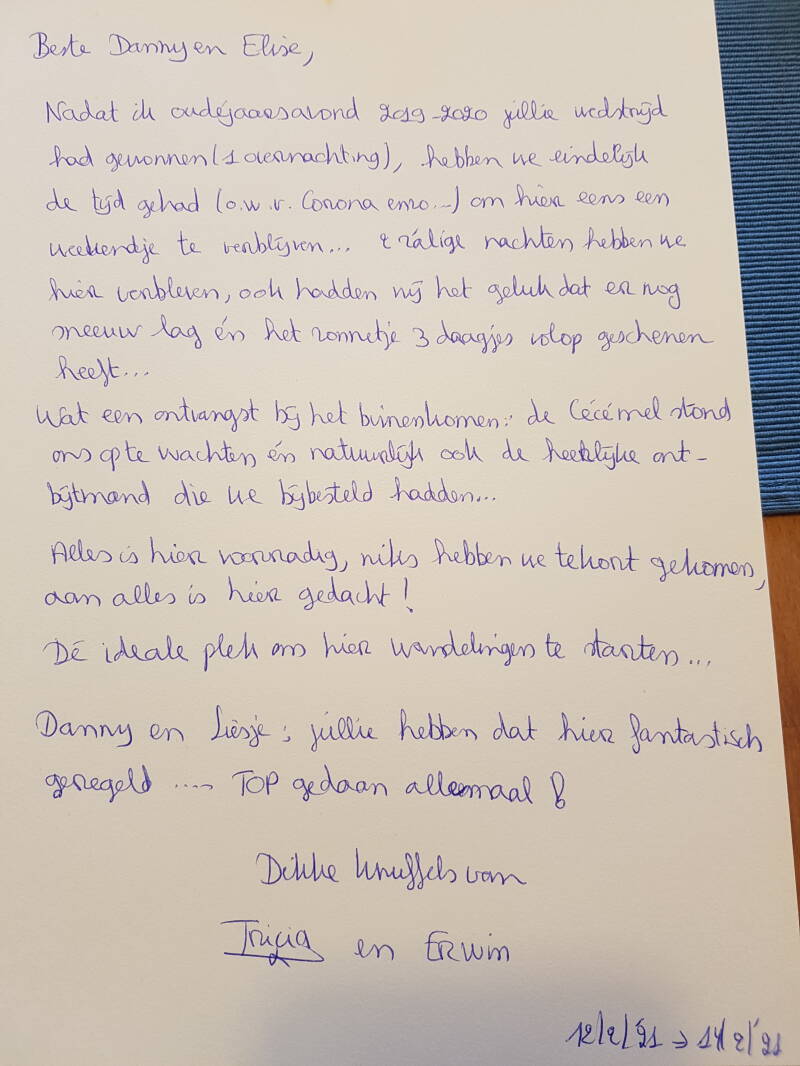 Beste Danny en Elise,
Nadat ik oudejaarsavond 2019-2020 jullie wedstrijd
had gewonnen (1 overnachting), hebben we eindelijk
de tijd gehad (o.w.v. Corona enzo...) om hier eens een
weekendje te verblijven... 2 zalige nachten hebben we
hier verbleven, ook hadden wij het geluk dat er nog
sneeuw lag én het zonnetje 3 daagjes volop geschenen
heeft...
Wat een ontvangst bij het binenkomen: de Cécémel stond
ons op te wachten én natuurlijk ook de heerlijke ont-
bijtmand die we bijbesteld hadden...
Alles is hier voorradig, niks hebben we tekort gekomen,
aan alles is hier gedacht!
Dé ideale plek om hier wandelingen te starten...
Danny en Liesje; jullie hebben dat hier fantastisch
geregeld .... TOP gedaan allemaal!
Dikke knuffels van
Tricia en Erwin
12/2/'21 → 14/2/'21